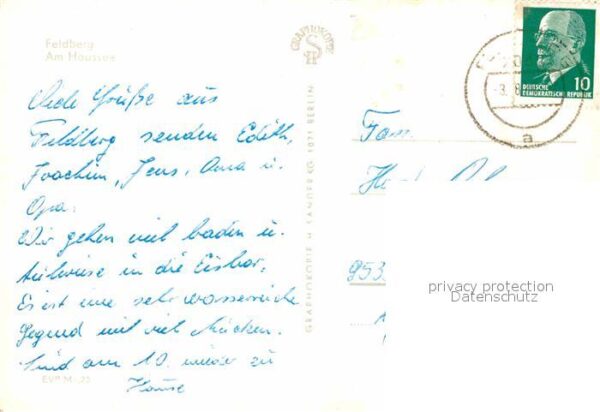 Feldberg
Am Haussee
Viele Grüße aus
Feldberg senden Edith,
Joachim, Jens, Oma u.
Opa.
Wir gehen viel baden u.
in die Eisbar.
Es ist eine sehr wasserreiche
Gegend mit viel Mücken.
Sind am 10. wieder zu
Hause
EVP M -,25
GRAPHOKOPIE H. SANDER KG 1071 BERLIN
GRAPHOKOPIE
10
DEUTSCHE
DEMOKRATISCHE REPUBLIK
-3. 8
a
Fam.
953
privacy protection
Datenschutz